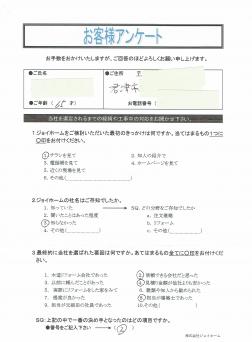 お客様アンケート
お手数をおかけいたしますが、ご回答のほどよろしくお願い申し上げます。
●ご氏名
●ご住所 〒
君津市
●ご年齢 ( 65 才)
お電話番号 (
当社を選定されるまでの経緯や工事中の対応をお聞かせ下さい。
1.ジョイホームをご検討いただいた最初のきっかけは何ですか。当てはまるもの1つに○印をお付けください。
1. チラシを見て
2. 知人の紹介で
3. 電話帳を見て
4. ホームページを見て
5. 近くの現場を見て
6. その他(
2.ジョイホームの社名はご存知でしたか。
1. 知っていた
SQ. どの分野をご存知でしたか
2. 聞いたことはあった程度
a. 注文建築
3. 知らなかった
b. リフォーム
4. その他(
c. その他(
3.最終的に当社を選ばれた要因は何ですか。あてはまるもの全てに○印をお付けください。
1. 木造リフォーム会社であった
2. 信頼できる会社だと思った
3. 以前に頼んだことがあった
4. 見積り金額が他社よりも安かった
5. 実際にリフォームした家をみて
6. 親類や知人から勧められた
7. 提案が良かった
8. 担当が職人であった
9. 担当が元競合の社員であった
10. その他(
SQ:上記の中で一番の決め手となったのはどの項目ですか。
●番号をご記入下さい
( 2 )
株式会社ジョイホーム